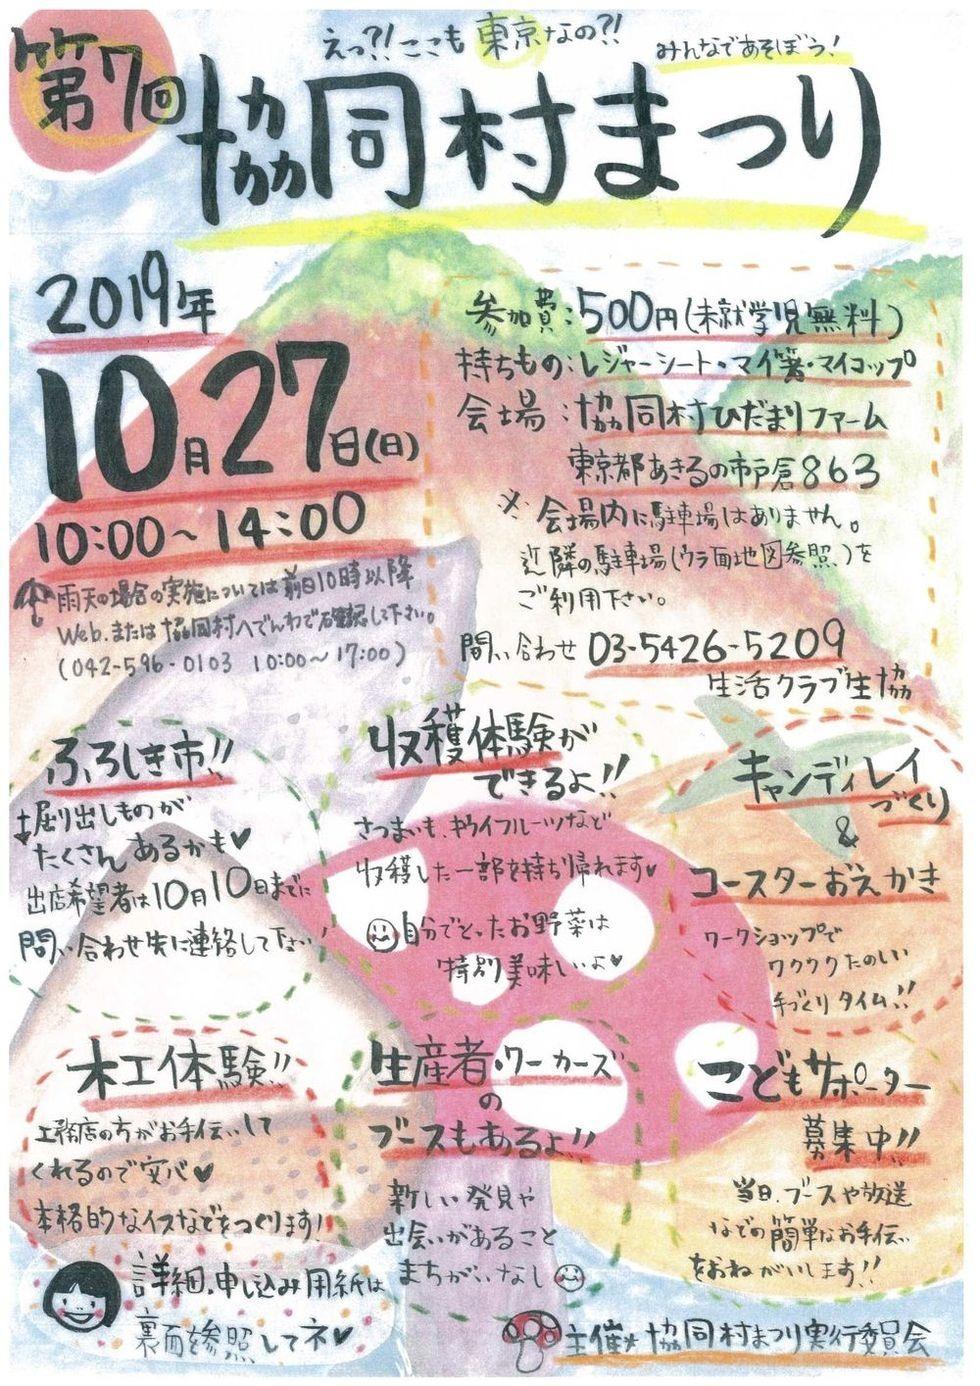 第7回
えっ?!ここも東京なの?!
みんなであそぼう!
協同村まつり
2019年
10月27日(日)
10:00〜14:00
雨天の場合の実施については前日10時以降
Web.または協同村へでんわで確認して下さい。
(042-596-0103 10:00〜17:00)
参加費:500円(未就学児無料)
持ちもの:レジャーシート・マイ箸・マイコップ
会場:協同村ひだまりファーム
東京都あきるの市戸倉863
※会場内に駐車場はありません。
近隣の駐車場(ウラ面地図参照)を
ご利用下さい。
問い合わせ 03-5426-5209
生活クラブ生協
ふろしき市!!
掘り出しものが
たくさんあるかも♥
出店希望者は10月10日までに
問い合わせ先に連絡して下さい
収穫体験が
できるよ!!
さつまいも、キウイフルーツなど
収穫した一部を持ち帰れます♥
自分でとったお野菜は
特別美味しいよ♥
キャンディレイ
づくり
&
コースターおえかき
ワークショップで
ワクワクたのしい
手づくりタイム!!
木工体験!!
工務店の方がお手伝いして
くれるので安心♥
本格的なイスなどをつくります!
生産者・ワーカーズ
の
ブースもあるよ!!
新しい発見や
出会いがあること
まちがいなし
こどもサポーター
募集中!!
当日、ブースや放送
などの簡単なお手伝い
をおねがいします!!
詳細、申し込み用紙は
裏面を参照してネ♥
主催★協同村まつり実行委員会